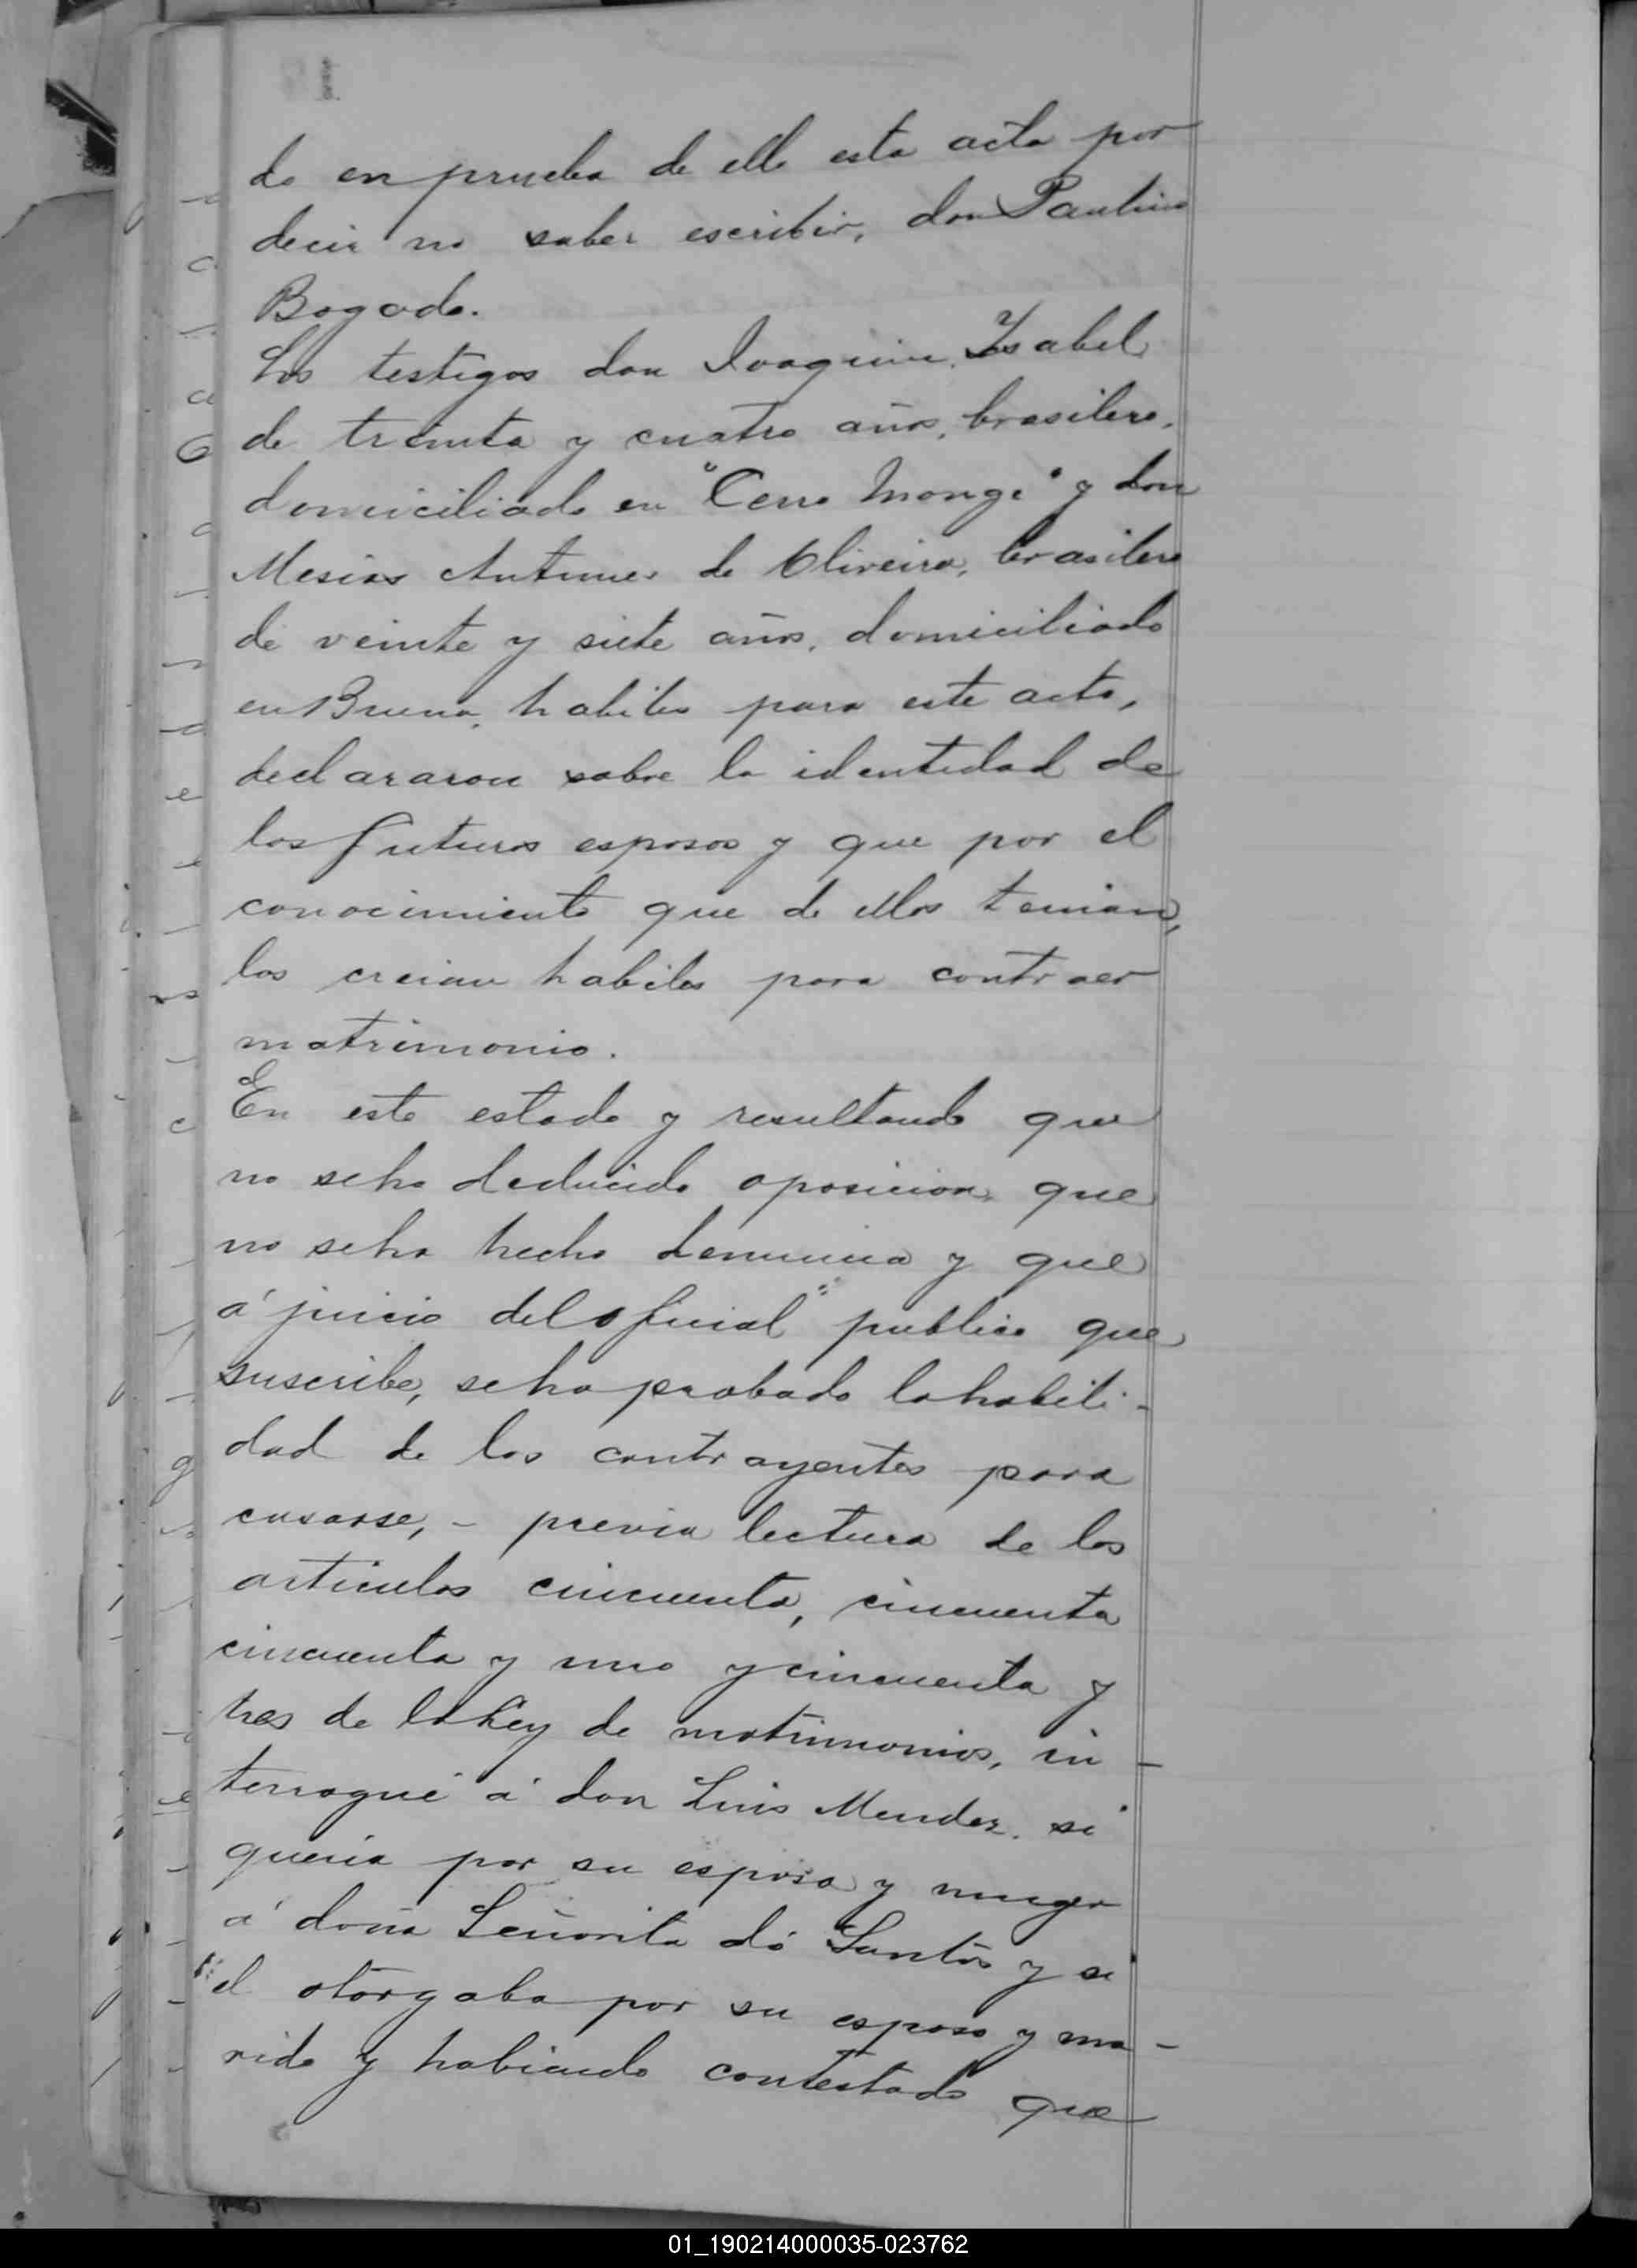 do en prueba de ello esta acta por
decir no saber escribir, don Paulino
Bogado.
Los testigos don Joaquin Isabel
de treinta y cuatro años, brasilero,
domiciliado en "Cerro Monge" y don
Mesias Antunes de Oliveira, brasilero
de veinte y siete años, domiciliado
en Bruna, habiles para este acto,
declararon sobre la identidad de
los futuros esposos y que por el
conocimiento que de ellos tenian,
los creian habiles para contraer
matrimonio.
En este estado y resultando que
no se ha deducido oposicion, que
no se ha hecho denuncia y que
á juicio del oficial publico que
suscribe, se ha probado la habili-
dad de los contrayentes para
casarse, - previa lectura de los
articulos cincuenta, cincuenta
cincuenta y uno y cincuenta y
tres de la Ley de matrimonios, in-
terrogué á don Luis Mendez, si
queria por su esposa y muger
á doña Señorita dó Santos y si
él otorgaba por su esposo y ma-
rido y habiendo contestado que
01_190214000035-023762